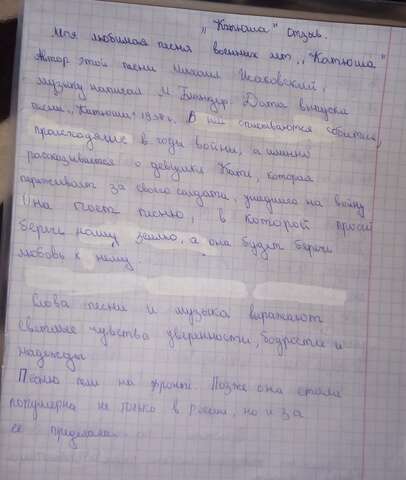 „Катюша" Отзыв.
Моя любимая песня военных лет „Катюша"
Автор этой песни Михаил Исаковский,
музыку написал М. Блантер. Дата выпуска
песни „Катюша" 1938 г. В ней описываются события,
происходящие в годы войны, а именно
рассказывается о девушке Кати, которая
переживает за своего солдата, ушедшего на войну
Она поёт песню, в которой просит
беречь нашу землю, а она будет беречь
любовь к нему.
Слова песни и музыка выражают
светлые чувства уверенности, бодрости и
надежды
Песню пели на фронте. Позже она стала
популярна не только в России, но и за
её пределами